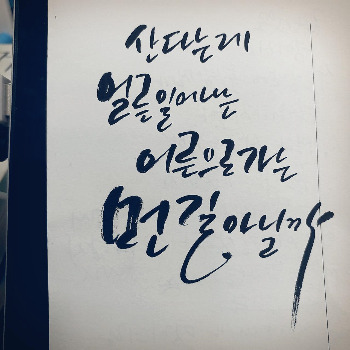 산다는게
얼른일어나는
어른으로가는
먼길아닐까